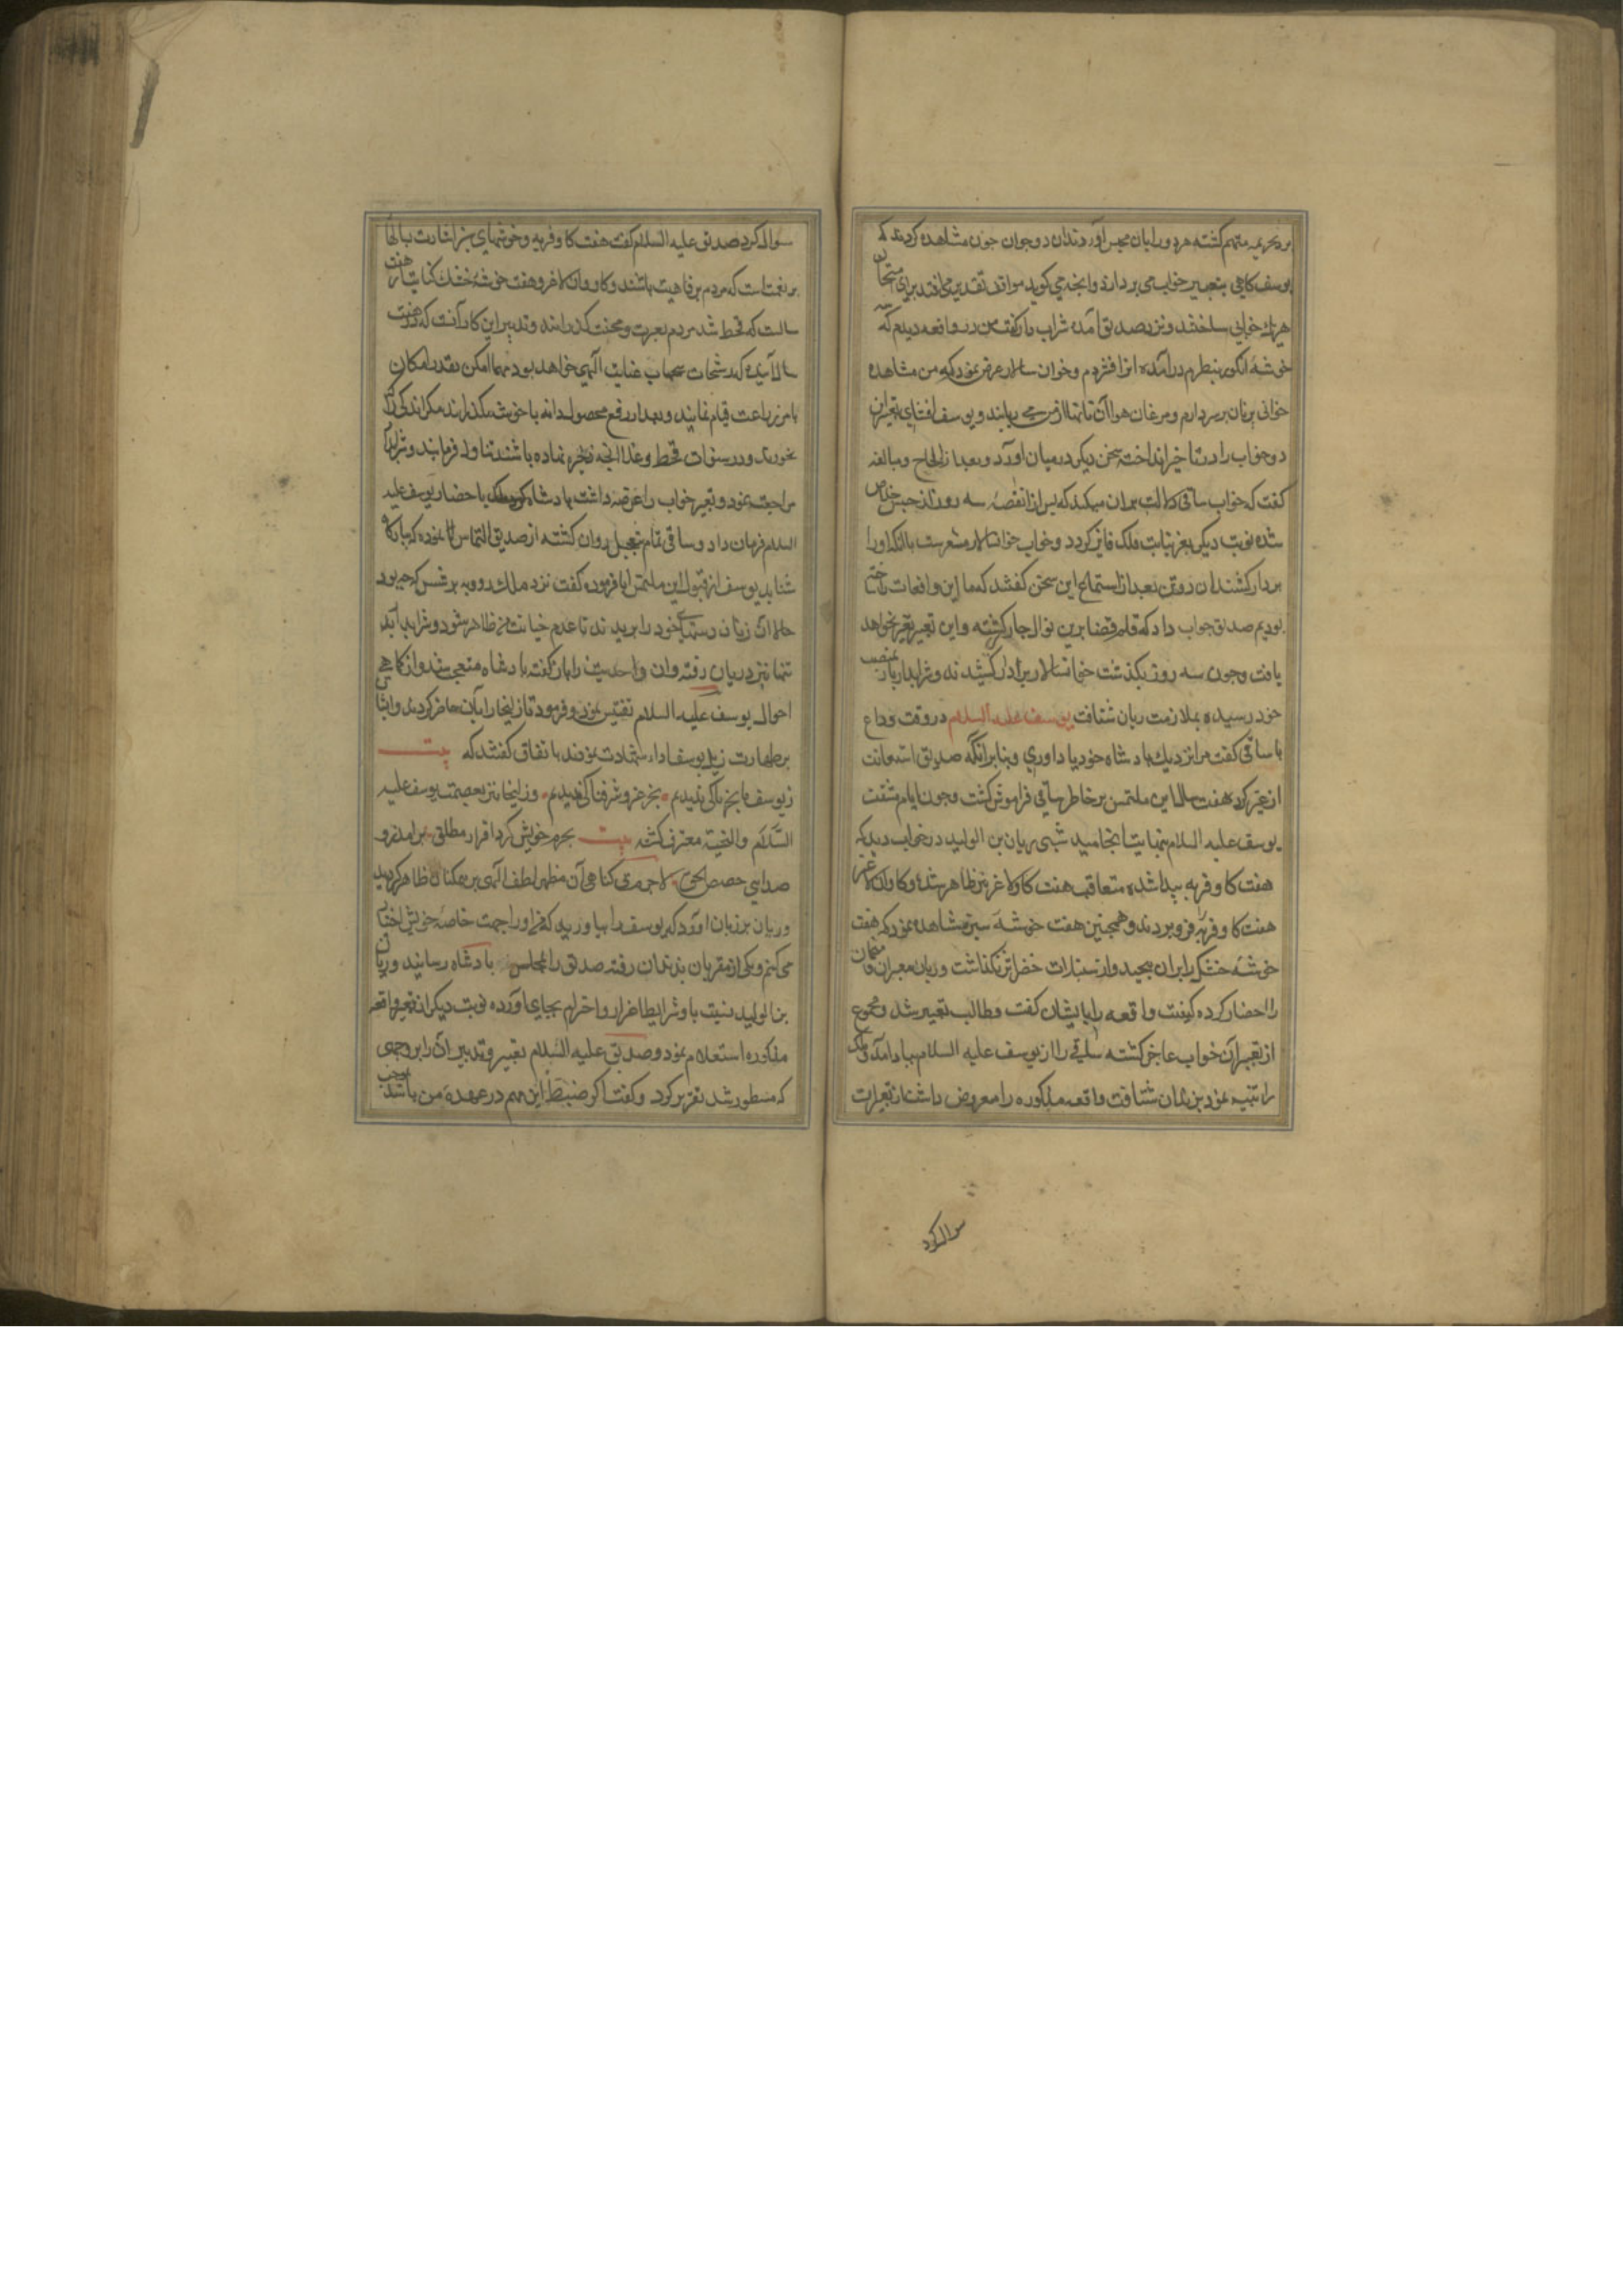 بر تحریمه متهم گشته هر دو را بان محبس آوردند آن دو جوان چون مشاهده کردند که
یوسف کاهی بتعبیر خواب می پردازد و آنچه می کوید موافق تقدیر می افتد برای امتحان
هر یک خوابی ساختند و نزد صدیق آمده شراب دار گفت من در واقعه دیدم که سه
خوشهٔ انگور بنظرم درآمده انرا فشردم و خوان سالار عرض نمود که من مشاهده
خوانی پر نان بر سر دارم و مرغان هوا آن نانها را از من می ربایند و یوسف افشای تعبیر این
دو خواب را در تاخیر انداخته سخن دیکر در میان آورد و بعد از الحاح و مبالغه
گفت که خواب ساقی دلالت بر ان میکند که پس از انقضاء سه روز از حبس خلاص
شده نوبت دیکر بعز نیابت ملک فایز کردد و خواب خوانسالار مشعرست بانکه او را
بردار کشند ان دو تن بعد از استماع این سخن کفتند که ما این واقعات را ساخته
بودیم صدیق جواب داد که قلم قضا برین نوال جار کشته و این تعبیر تغیر نخواهد
یافت و چون سه روز بکذشت خوانسالار بردار کشیدند و شرابدار باز بمنصب
خود رسیده بملازمت ریان شتافت یوسف علیه السلام در وقت وداع
با ساقی کفت مرا نزدیک پادشاه خود یاد اوری و بنا بر انکه صدیق استعانت
از غیر کرد هفت سال این ملتمس بر خاطر ساقی فراموش کشت و چون ایام مشقت
یوسف علیه السلام بنهایت انجامید شبی ریان بن الولید در خواب دید که
هفت کاو فربه پیدا شده متعاقب هفت کاو لاغر نیز ظاهر شد و کاوان لاغر
هفت کاو فربه فرو بردند و همچنین هفت خوشهٔ سبز مشاهده نمود که هفت
خوشه خشک برایران پیچید و از سنبلات خضر اثر نکذاشت و ریان معبران و منجمان
را احضار کرده کیفیت واقعه را با یشان کفت و طالب تعبیر شد و مجموع
از تعبیر آن خواب عاجز کشته ساقی را از یوسف علیه السلام بیاد آمد و ملک
را تنبیه نمود بزندان شتافت واقعه مذکوره را معروض داشت از تعبیرات
سوال کرد
سوال کرد صدیق علیه السلام کفت هفت کاو فربه و خوشهای سبز اشارت بسالها
پر نعمتست که مردم برفاهیت باشند و کاوان لاغر و هفت خوشهٔ خشک کنایت از هفت
سالست که قحط شد مردم بعسرت و محنت کذرانند و تدبیر این کار آنست که در هفت
سال آینده که رشحات سحاب عنایت الهی خواهد بود مهما امکن بقدر امکان
بامر زراعت قیام نمایند و بعد از رفع محصول دانه با خوشه بکذارند مکر اندکی که
بخورند و در سنوات قحط و غلا آنچه ذخیره نهاده باشند تناول فرمایند و شرابدار
مراجعت نمود و تعبیر خواب را عرضه داشت پادشاه کرد ملک باحضار یوسف علیه
السلام فرمان داد و ساقی تمام بتعجیل روان کشته از صدیق التماس نموده که ببارکاه
شتابد یوسف از قبول این ملتمس ابا فرموده کفت نزد ملک رو و بپرس که چه بود
حال آن زنان دستهای خود را بریدند تا عدم خیانت من ظاهر شود و شرابدار
تنها نزد ریان رفته و آن احدیث را باز کفت پادشاه متعجب شد و از کماهی
احوال یوسف علیه السلام تفتیش نمود و فرمود تا زلیخا را با آن حاضر کردند و ایشان
بر طهارت ذیل یوسف اداء شهادت نمودند باتفاق کفتند که بیت
ز یوسف ما بجز پاکی ندیدیم بجز عز و شرفناکی ندیدیم و زلیخا نیز بعصمت یوسف علیه
السّلام والتحیة معترف کشته بیت بجرم خویش کرد اقرار مطلق برامد زو
صدای حصحص الحق لاجرم بی کناهی آن مظهر لطف الهی بر همکنان ظاهر کردید
و ریان بر زبان آورد که یوسف را بیاورید که من او را جهت خاصهٔ خویش اختیار
می کنم و یکی از مقربان بزندان رفته صدیق را بمجلس پادشاه رسانید و ریان
بن الولید نسبت باو شرایط اعزاز و احترام بجای آورده نوبت دیکر از تعبیر واقعه
مذکوره استعلام نمود و صدیق علیه السّلام تعبیر و تدبیر آن را بر وجهی
که مسطور شد تقریر کرد و کفت اکر ضبط این مهم در عهدهٔ من باشد موجب